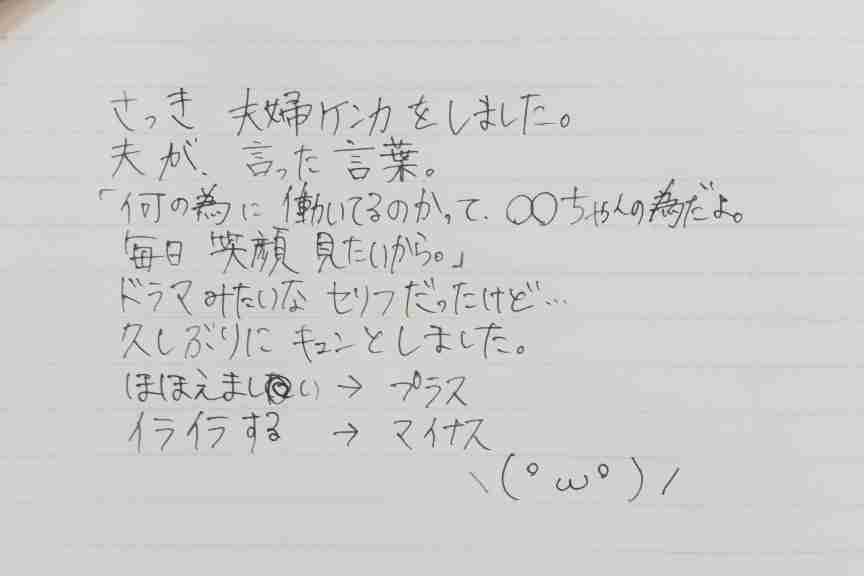 さっき 夫婦ケンカをしました。
夫が、言った言葉。
「何の為に働いてるのかって、〇〇ちゃんの為だよ。
毎日 笑顔 見たいから。」
ドラマみたいな セリフだったけど…
久しぶりに キュンとしました。
ほほえましい → プラス
イライラする → マイナス
\(°ω°)/